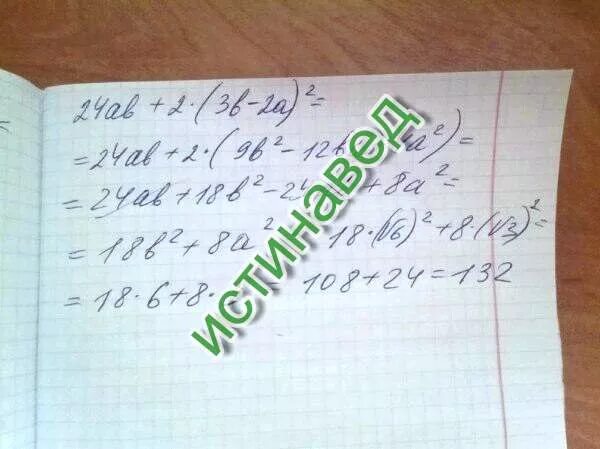 24ab + 2·(3b-2a)²=
=24ab+2·(9b²-12b 4a²)=
=24ab+18b²-24 +8a²=
=18b²+8a² 18·(√6)²+8·(√3)²=
=18·6+8· = 108+24=132
истинавед